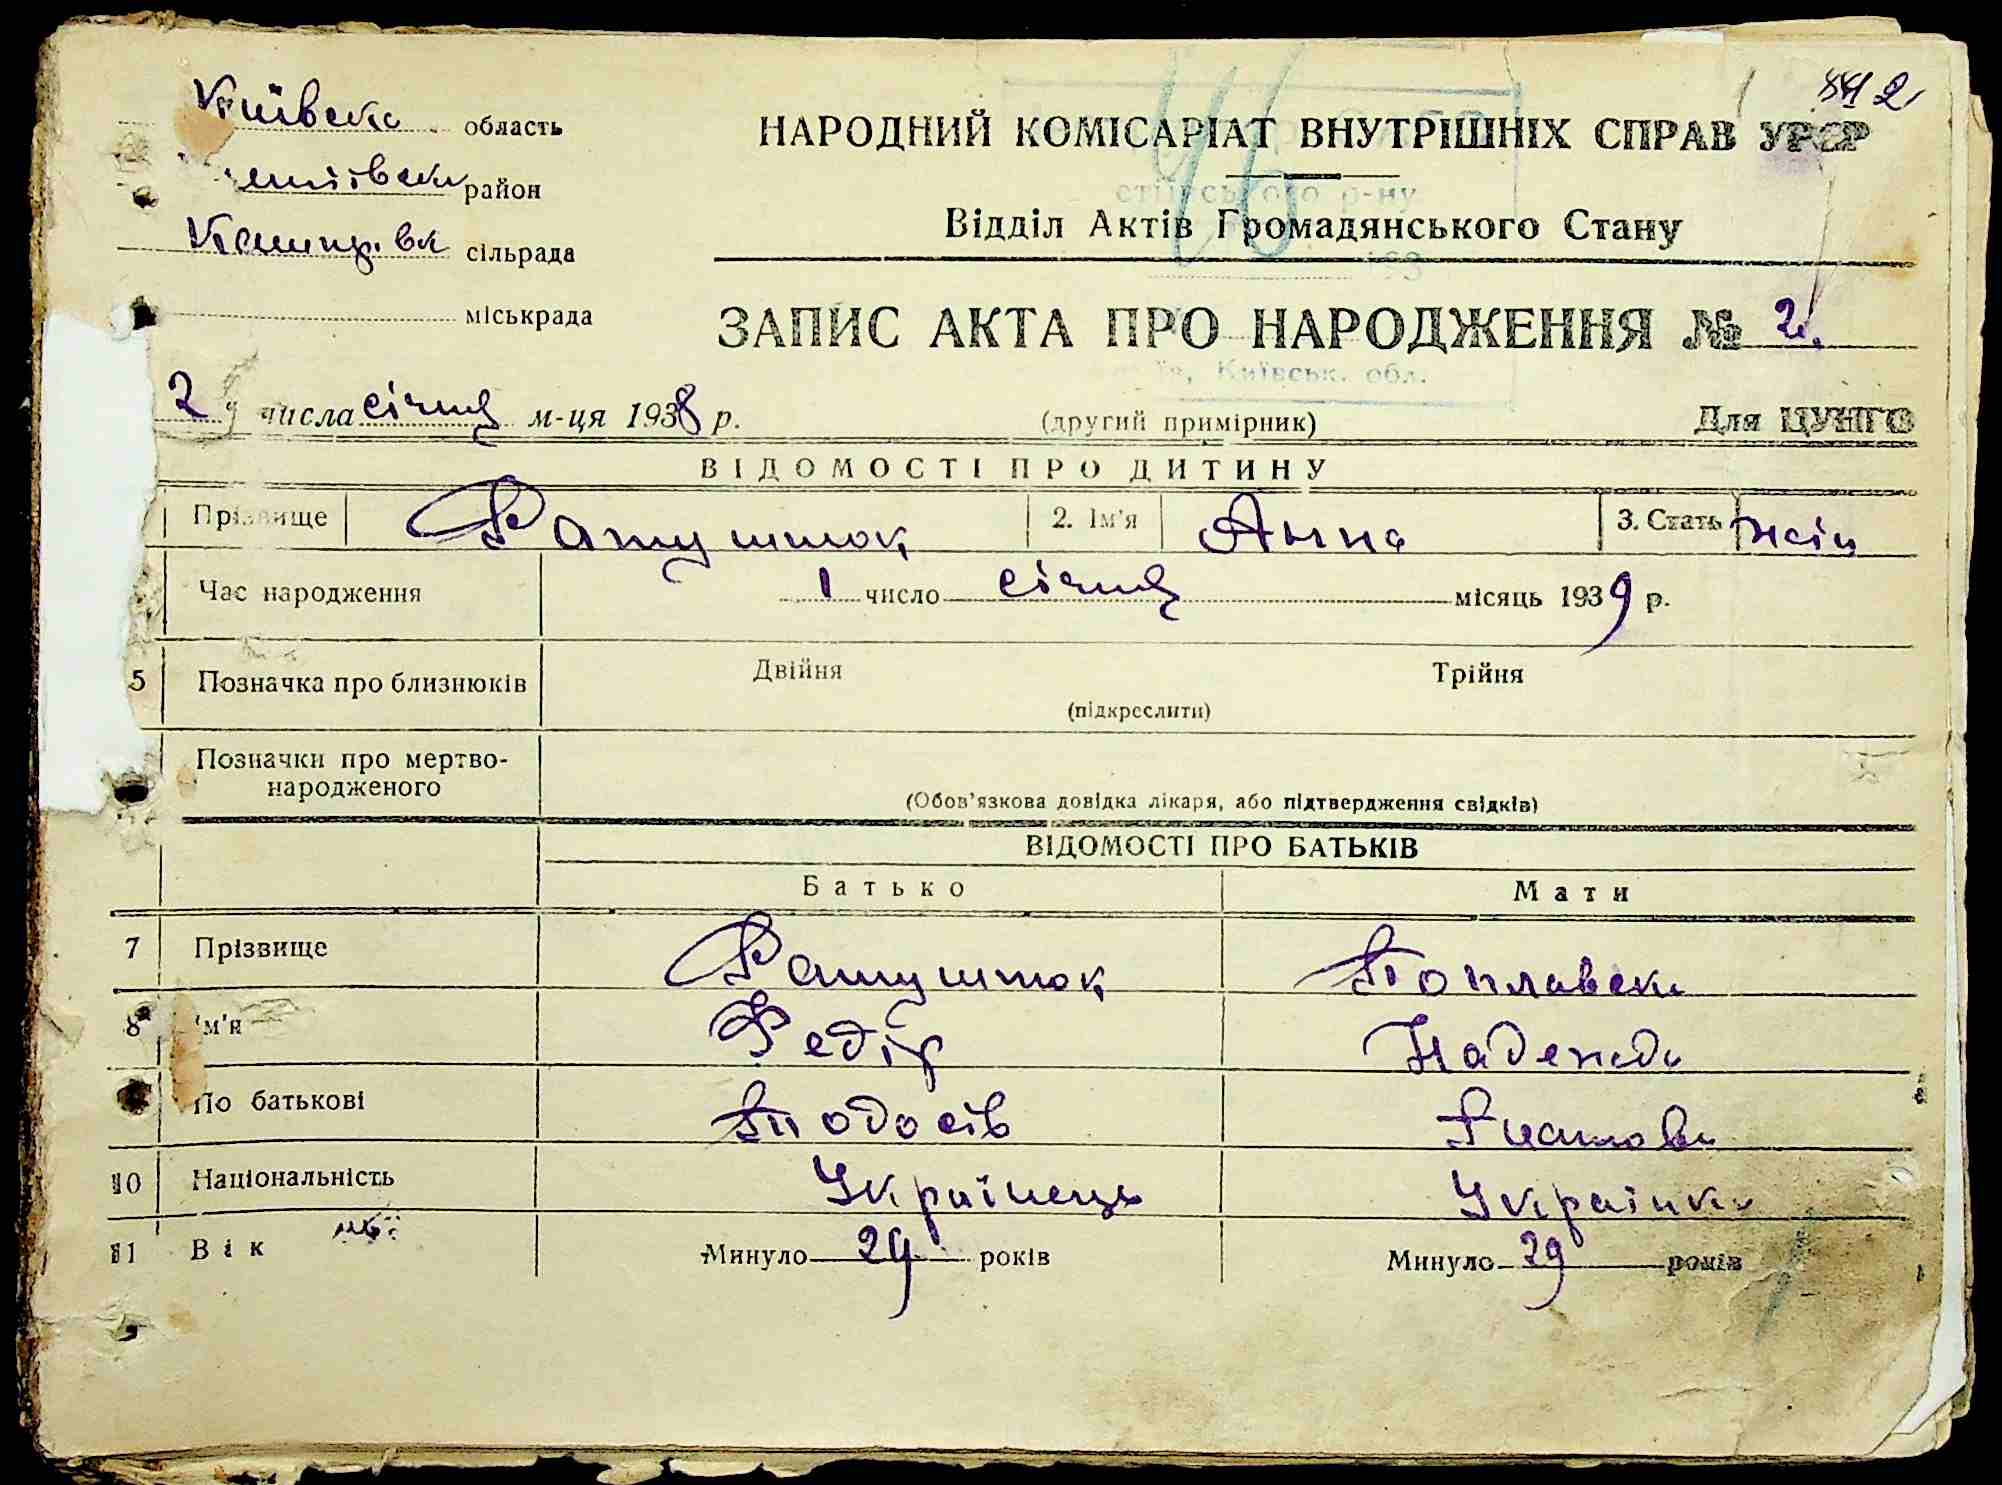 Київська область
район
сільрада
міськрада
НАРОДНИЙ КОМІСАРІАТ ВНУТРІШНІХ СПРАВ УРСР
Відділ Актів Громадянського Стану
ЗАПИС АКТА ПРО НАРОДЖЕННЯ № 2
2 числа січня м-ця 1938 р.
(другий примірник)
Для ЦУНГО
р-ну
193
Київськ. обл.
ВІДОМОСТІ ПРО ДИТИНУ
Прізвище Ратушнюк 2. Ім'я Анна 3. Стать жін
Час народження 1 число січня місяць 1939 р.
5 Позначка про близнюків Двійня Трійня
(підкреслити)
Позначки про мертво-
народженого
(Обов'язкова довідка лікаря, або підтвердження свідків)
ВІДОМОСТІ ПРО БАТЬКІВ
Батько Мати
7 Прізвище Ратушнюк Поплавська
8 Ім'я Федір Надежда
По батькові Тодосів
10 Національність Українець Українка
11 Вік Минуло 29 років Минуло 29 років